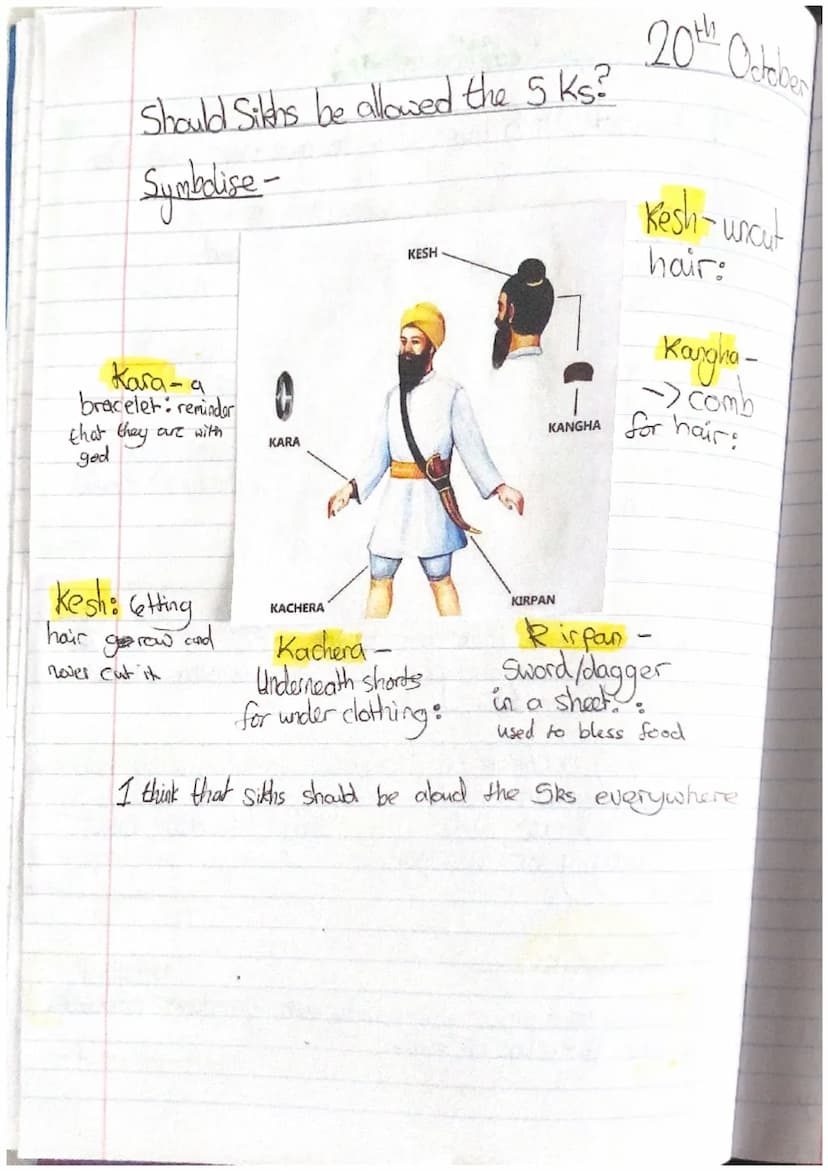 20th October
Should Sikhs be allowed the 5 Ks?
Symbolise -
Kesh - uncut
hair:
KESH
Kangha -
-> comb
for hair:
KANGHA
Kara - a
bracelet: reminder
that they are with
god
KARA
KACHERA
KIRPAN
Kesh: letting
hair grow and
never cut it
Kachera -
Underneath shorts
for under clothing:
Kirpan -
Sword/dagger
in a sheet. :
used to bless food
I think that sikhs should be aloud the 5ks everywhere